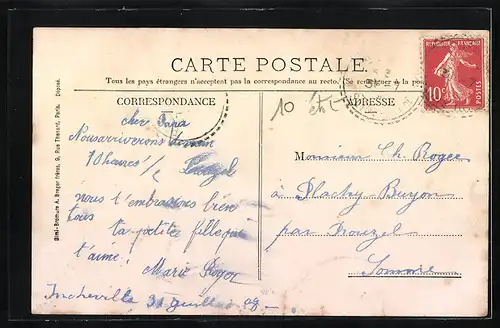 CARTE POSTALE
Tous les pays étrangers n'acceptent pas la correspondance au recto. (Se renseigner à la poste
CORRESPONDANCE
ADRESSE
RÉPUBLIQUE FRANÇAISE
10c
10
cher Papa
Nous arriverons demain
10 heures 1/2
nous t'embrassons bien
tous
ta petite fille qui
t'aime
Marie Royer
Incheville 31 Juillet 09
Monsieur Ch. Royer
à Plachy Buyon
par Prouzel
Somme
Simili-Bromure A. Breger frères, 9, Rue Thenard, Paris. Déposé.